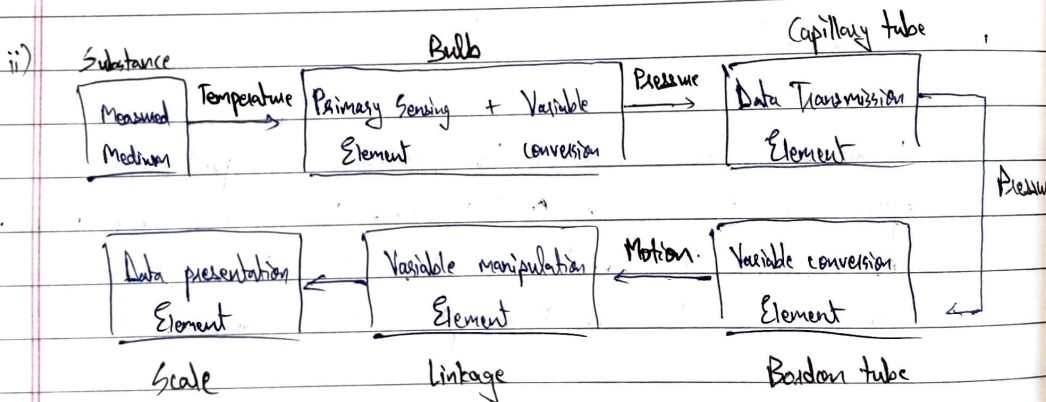 ii)
Substance
Bulb
Capillary tube
Measured
Medium
Temperature
Primary Sensing + Variable
Element conversion
Pressure
Data Transmission
Element
Pressu
Data presentation
Element
Variable manipulation
Element
Motion.
Variable conversion
Element
Scale
Linkage
Bordon tube